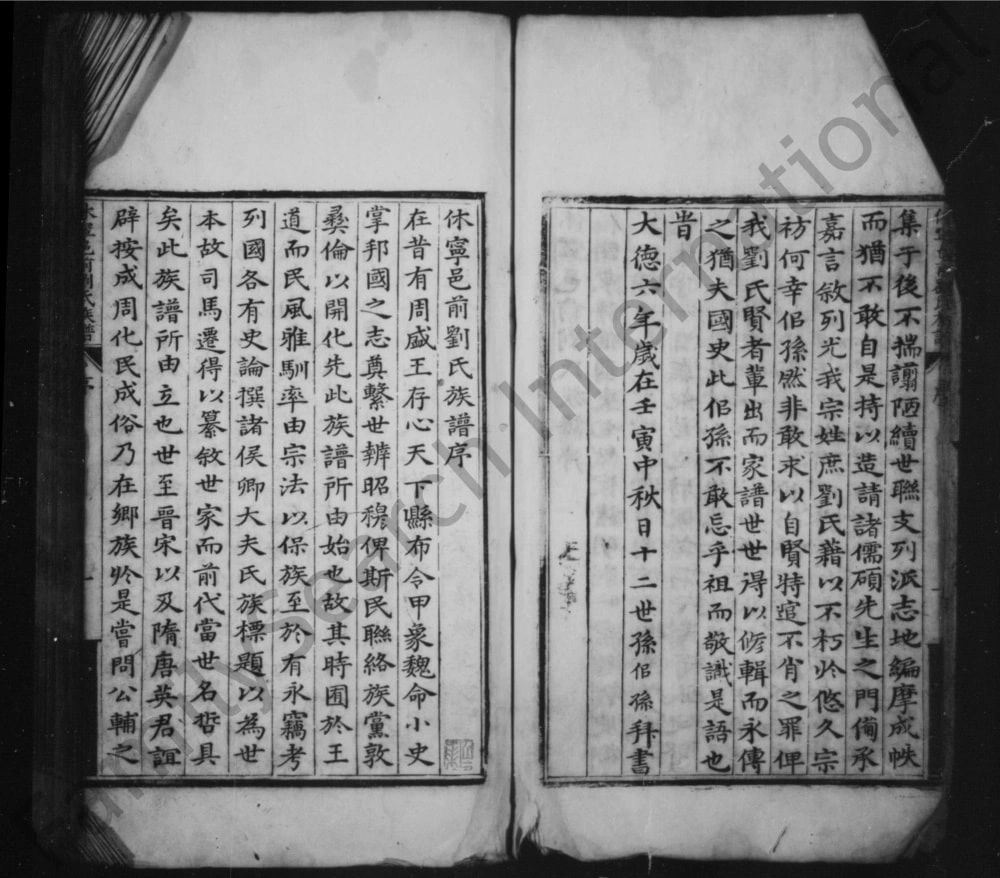 集于後不揣譾陋續世聯支列派志地編摩成帙
而猶不敢自是持以造請諸儒碩先生之門備承
嘉言敘列光我宗姓庶劉氏藉以不朽於悠久宗
祊何幸佀孫然非敢求以自賢特逭不肖之罪俾
我劉氏賢者輩出而家譜世世得以修輯而永傳
之猶夫國史此佀孫不敢忘乎祖而敬識是語也
旹
大德六年歲在壬寅中秋日十二世孫佀孫拜書
休寧邑前劉氏族譜序
在昔有周盛王存心天下縣布令甲象魏命小史
掌邦國之志奠繫世辨昭穆俾斯民聯絡族黨敦
彝倫以開化先此族譜所由始也故其時囿於王
道而民風雅馴率由宗法以保族至於有永竊考
列國各有史論撰諸侯卿大夫氏族標題以為世
本故司馬遷得以纂敘世家而前代當世名哲具
矣此族譜所由立也世至晉宋以及隋唐英君誼
辟按成周化民成俗乃在鄉族於是嘗問公輔之
休寧邑前劉氏族譜
序
Family Search International